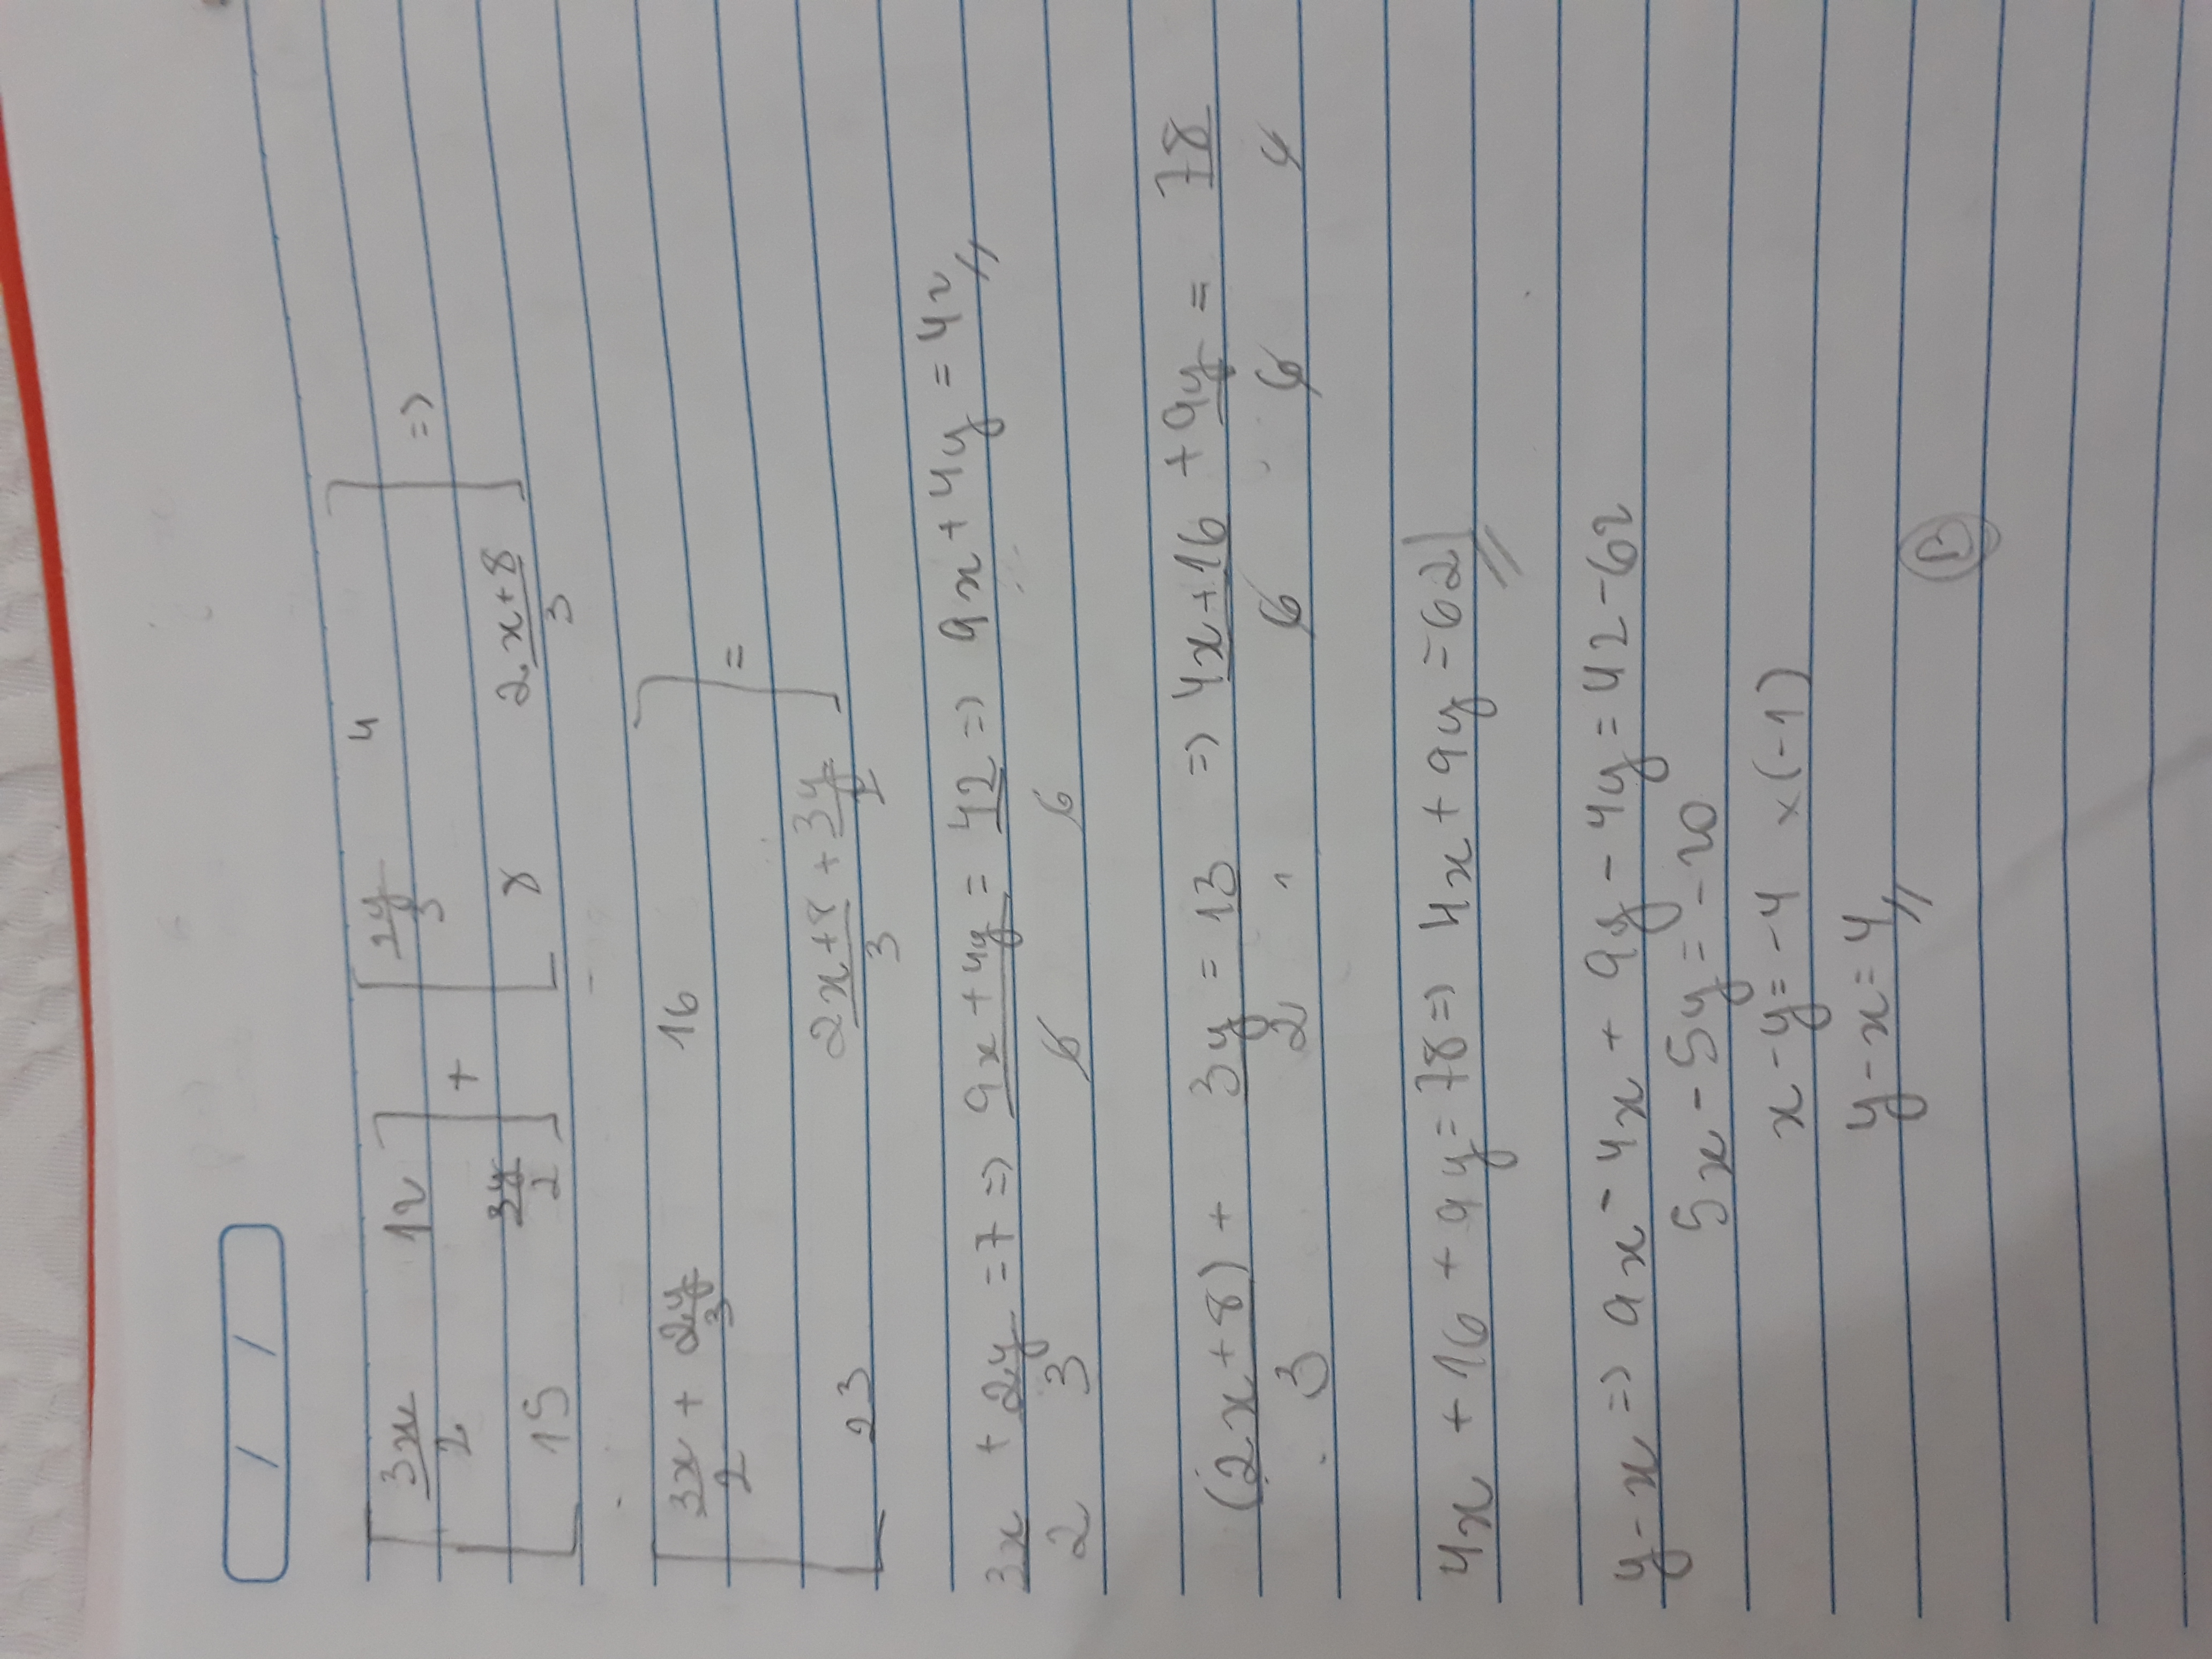 / /
[ 3x/2 12 ] + [ 2y/3 4 ] =>
[ 15 3y/2 ] [ 8 2x+8/3 ]
[ 3x/2 + 2y/3 16 ] =
[ 23 2x+8/3 + 3y/2 ]
3x/2 + 2y/3 = 7 => 9x+4y/6 = 42/6 => 9x+4y = 42
(2x+8)/3 + 3y/2 = 13/1 => 4x+16/6 + 9y/6 = 78/6
4x + 16 + 9y = 78 => 4x + 9y = 62
y-x => 9x - 4x + 9y - 4y = 42-62
5x - 5y = -20
x - y = -4 x(-1)
y - x = 4
B